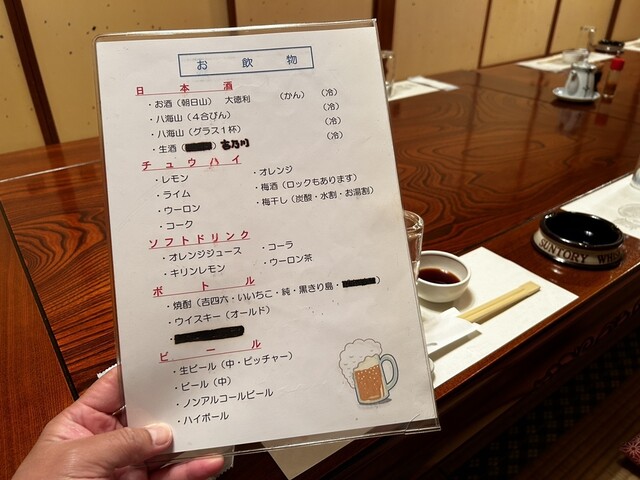 お飲物
日本酒
・お酒（朝日山） 大徳利 （かん）（冷）
・八海山（４合びん） （冷）
・八海山（グラス１杯） （冷）
・生酒（ ）吉乃川 （冷）
チュウハイ
・レモン
・ライム
・ウーロン
・コーク
・オレンジ
・梅酒（ロックもあります）
・梅干し（炭酸・水割・お湯割）
ソフトドリンク
・オレンジジュース
・キリンレモン
・コーラ
・ウーロン茶
ボトル
・焼酎（吉四六・いいちこ・純・黒きり島・ ）
・ウイスキー（オールド）
・
ビール
・生ビール（中・ピッチャー）
・ビール（中）
・ノンアルコールビール
・ハイボール
SUNTORY WHI